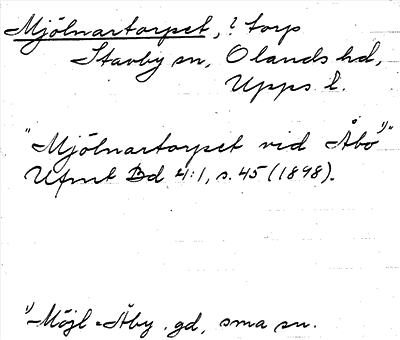 Mjölnartorpet, ? torp
Stavby sn, Olands hd,
Upps l.
"Mjölnartorpet vid Åbo 1)"
Ufmt Bd 4:1, s. 45 (1898).
1) Möjl = Åby gd, sma sn.